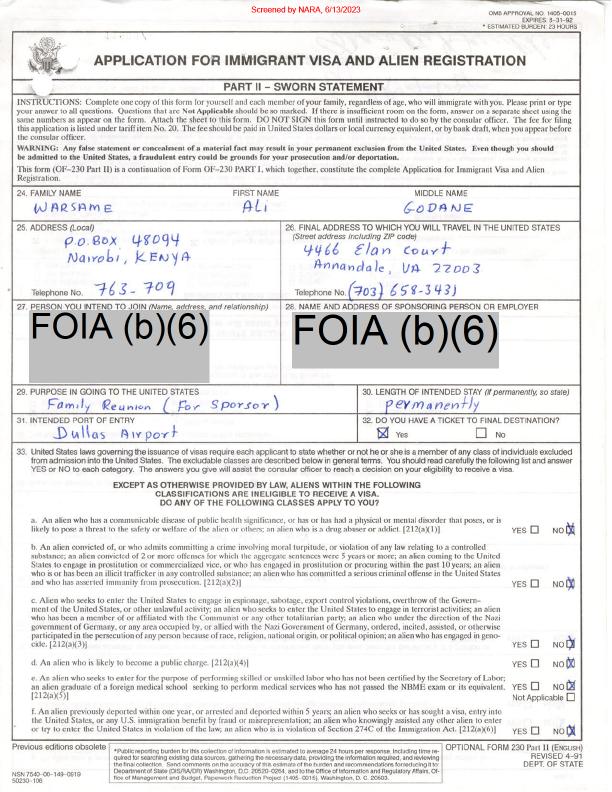 Screened by NARA, 6/13/2023
OMB APPROVAL NO. 1405-0015
EXPIRES: 8-31-92
* ESTIMATED BURDEN: 23 HOURS
APPLICATION FOR IMMIGRANT VISA AND ALIEN REGISTRATION
PART II – SWORN STATEMENT
INSTRUCTIONS: Complete one copy of this form for yourself and each member of your family, regardless of age, who will immigrate with you. Please print or type
your answer to all questions. Questions that are Not Applicable should be so marked. If there is insufficient room on the form, answer on a separate sheet using the
same numbers as appear on the form. Attach the sheet to this form. DO NOT SIGN this form until instructed to do so by the consular officer. The fee for filing
this application is listed under tariff item No. 20. The fee should be paid in United States dollars or local currency equivalent, or by bank draft, when you appear before
the consular officer.
WARNING: Any false statement or concealment of a material fact may result in your permanent exclusion from the United States. Even though you should
be admitted to the United States, a fraudulent entry could be grounds for your prosecution and/or deportation.
This form (OF–230 Part II) is a continuation of Form OF–230 PART I, which together, constitute the complete Application for Immigrant Visa and Alien
Registration.
24. FAMILY NAME FIRST NAME MIDDLE NAME
WARSAME ALI GODANE
25. ADDRESS (Local)
P.O.BOX 48094
Nairobi, KENYA
Telephone No. 763-709
26. FINAL ADDRESS TO WHICH YOU WILL TRAVEL IN THE UNITED STATES
(Street address including ZIP code)
4466 Elan Court
Annandale, VA 22003
Telephone No. (703) 658-3431
27. PERSON YOU INTEND TO JOIN (Name, address, and relationship)
FOIA (b)(6)
28. NAME AND ADDRESS OF SPONSORING PERSON OR EMPLOYER
FOIA (b)(6)
29. PURPOSE IN GOING TO THE UNITED STATES
Family Reunion (For Sporsor)
30. LENGTH OF INTENDED STAY (If permanently, so state)
permanently
31. INTENDED PORT OF ENTRY
Dullas Airport
32. DO YOU HAVE A TICKET TO FINAL DESTINATION?
Yes No
33. United States laws governing the issuance of visas require each applicant to state whether or not he or she is a member of any class of individuals excluded
from admission into the United States. The excludable classes are described below in general terms. You should read carefully the following list and answer
YES or NO to each category. The answers you give will assist the consular officer to reach a decision on your eligibility to receive a visa.
EXCEPT AS OTHERWISE PROVIDED BY LAW, ALIENS WITHIN THE FOLLOWING
CLASSIFICATIONS ARE INELIGIBLE TO RECEIVE A VISA.
DO ANY OF THE FOLLOWING CLASSES APPLY TO YOU?
a. An alien who has a communicable disease of public health significance, or has or has had a physical or mental disorder that poses, or is
likely to pose a threat to the safety or welfare of the alien or others; an alien who is a drug abuser or addict. [212(a)(1)] YES NO
b. An alien convicted of, or who admits committing a crime involving moral turpitude, or violation of any law relating to a controlled
substance; an alien convicted of 2 or more offenses for which the aggregate sentences were 5 years or more; an alien coming to the United
States to engage in prostitution or commercialized vice, or who has engaged in prostitution or procuring within the past 10 years; an alien
who is or has been an illicit trafficker in any controlled substance; an alien who has committed a serious criminal offense in the United States
and who has asserted immunity from prosecution. [212(a)(2)] YES NO
c. Alien who seeks to enter the United States to engage in espionage, sabotage, export control violations, overthrow of the Govern-
ment of the United States, or other unlawful activity; an alien who seeks to enter the United States to engage in terrorist activities; an alien
who has been a member of or affiliated with the Communist or any other totalitarian party; an alien who under the direction of the Nazi
government of Germany, or any area occupied by, or allied with the Nazi Government of Germany, ordered, incited, assisted, or otherwise
participated in the persecution of any person because of race, religion, national origin, or political opinion; an alien who has engaged in geno-
cide. [212(a)(3)] YES NO
d. An alien who is likely to become a public charge. [212(a)(4)] YES NO
e. An alien who seeks to enter for the purpose of performing skilled or unskilled labor who has not been certified by the Secretary of Labor;
an alien graduate of a foreign medical school seeking to perform medical services who has not passed the NBME exam or its equivalent. YES NO
[212(a)(5)] Not Applicable
f. An alien previously deported within one year, or arrested and deported within 5 years; an alien who seeks or has sought a visa, entry into
the United States, or any U.S. immigration benefit by fraud or misrepresentation; an alien who knowingly assisted any other alien to enter
or try to enter the United States in violation of the law; an alien who is in violation of Section 274C of the Immigration Act. [212(a)(6)] YES NO
Previous editions obsolete
*Public reporting burden for this collection of information is estimated to average 24 hours per response, including time re-
quired for searching existing data sources, gathering the necessary data, providing the information required, and reviewing
the final collection. Send comments on the accuracy of this estimate of the burden and recommendations for reducing it to:
Department of State (DIS/RA/DR) Washington, D.C. 20520-0264, and to the Office of Information and Regulatory Affairs, Of-
fice of Management and Budget, Paperwork Reduction Project (1405-0015), Washington, D. C. 20503.
OPTIONAL FORM 230 Part II (ENGLISH)
REVISED 4-91
DEPT. OF STATE
NSN 7540-00-149-0919
50230-106